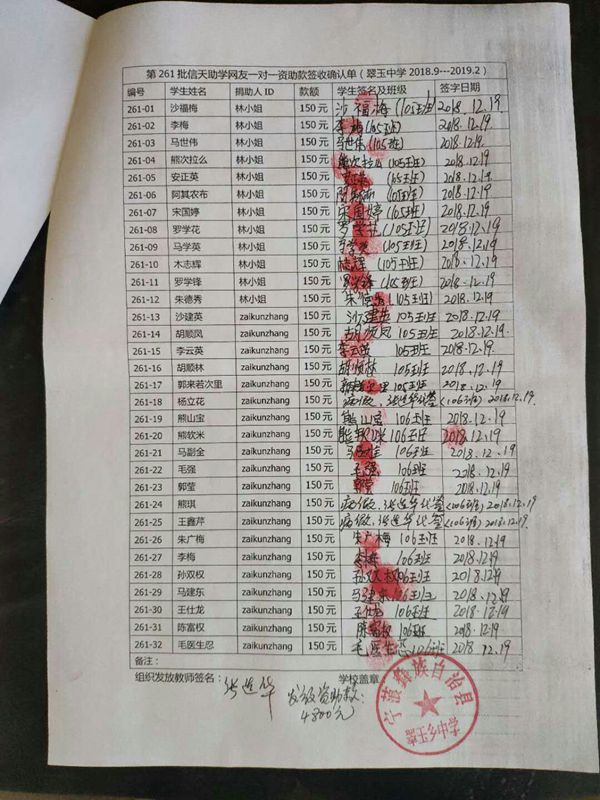 第 261 批信天助学网友一对一资助款签收确认单（翠玉中学 2018.9---2019.2）
编号 学生姓名 捐助人 ID 款额 学生签名及班级 签字日期
261-01 沙福梅 林小姐 150 元 沙福梅(105班) 2018.12.19
261-02 李梅 林小姐 150 元 李梅(105班) 2018.12.19
261-03 马世伟 林小姐 150 元 马世伟(105班) 2018.12.19
261-04 熊次拉么 林小姐 150 元 熊次拉么(105班) 2018.12.19
261-05 安正英 林小姐 150 元 安正英(105班) 2018.12.19
261-06 阿其农布 林小姐 150 元 (105班) 2018.12.19
261-07 宋国婷 林小姐 150 元 宋国婷(105班) 2018.12.19
261-08 罗学花 林小姐 150 元 罗学花(105班) 2018.12.19
261-09 马学英 林小姐 150 元 马学英(105班) 2018.12.19
261-10 木志辉 林小姐 150 元 (105班) 2018.12.19
261-11 罗学锋 林小姐 150 元 罗学锋(105班) 2018.12.19
261-12 朱德秀 林小姐 150 元 朱德秀(105班) 2018.12.19
261-13 沙建英 zaikunzhang 150 元 沙建英 105班 2018.12.19
261-14 胡顺凤 zaikunzhang 150 元 胡顺凤 105班 2018.12.19
261-15 李云英 zaikunzhang 150 元 李云英 105班 2018.12.19
261-16 胡顺林 zaikunzhang 150 元 胡顺林 105班 2018.12.19
261-17 郭来若次里 zaikunzhang 150 元 105班 2018.12.19
261-18 杨立花 zaikunzhang 150 元 病假，张连华代签(106班) 2018.12.19
261-19 熊山宝 zaikunzhang 150 元 熊山宝 106班 2018.12.19
261-20 熊软米 zaikunzhang 150 元 熊软咪 106班 2018.12.19
261-21 马副金 zaikunzhang 150 元 106班 2018.12.19
261-22 毛强 zaikunzhang 150 元 毛强 106班 2018.12.19
261-23 郭莹 zaikunzhang 150 元 郭莹 106班 2018.12.19
261-24 熊琪 zaikunzhang 150 元 病假，张连华代签(106班) 2018.12.19
261-25 王鑫芹 zaikunzhang 150 元 病假，张连华代签(106班) 2018.12.19
261-26 朱广梅 zaikunzhang 150 元 朱广梅 106班 2018.12.19
261-27 李梅 zaikunzhang 150 元 李梅 106班 2018.12.19
261-28 孙双权 zaikunzhang 150 元 孙双权 106班 2018.12.19
261-29 马建东 zaikunzhang 150 元 马建东 106班 2018.12.19
261-30 王仕龙 zaikunzhang 150 元 王仕龙 106班 2018.12.19
261-31 陈富权 zaikunzhang 150 元 陈富权 106班 2018.12.19
261-32 毛医生忍 zaikunzhang 150 元 毛医生忍 106班 2018.12.19
备注：
组织发放教师签名： 张连华 学校盖章
发放资助款：
4800元
宁蒗彝族自治县
翠玉乡中学